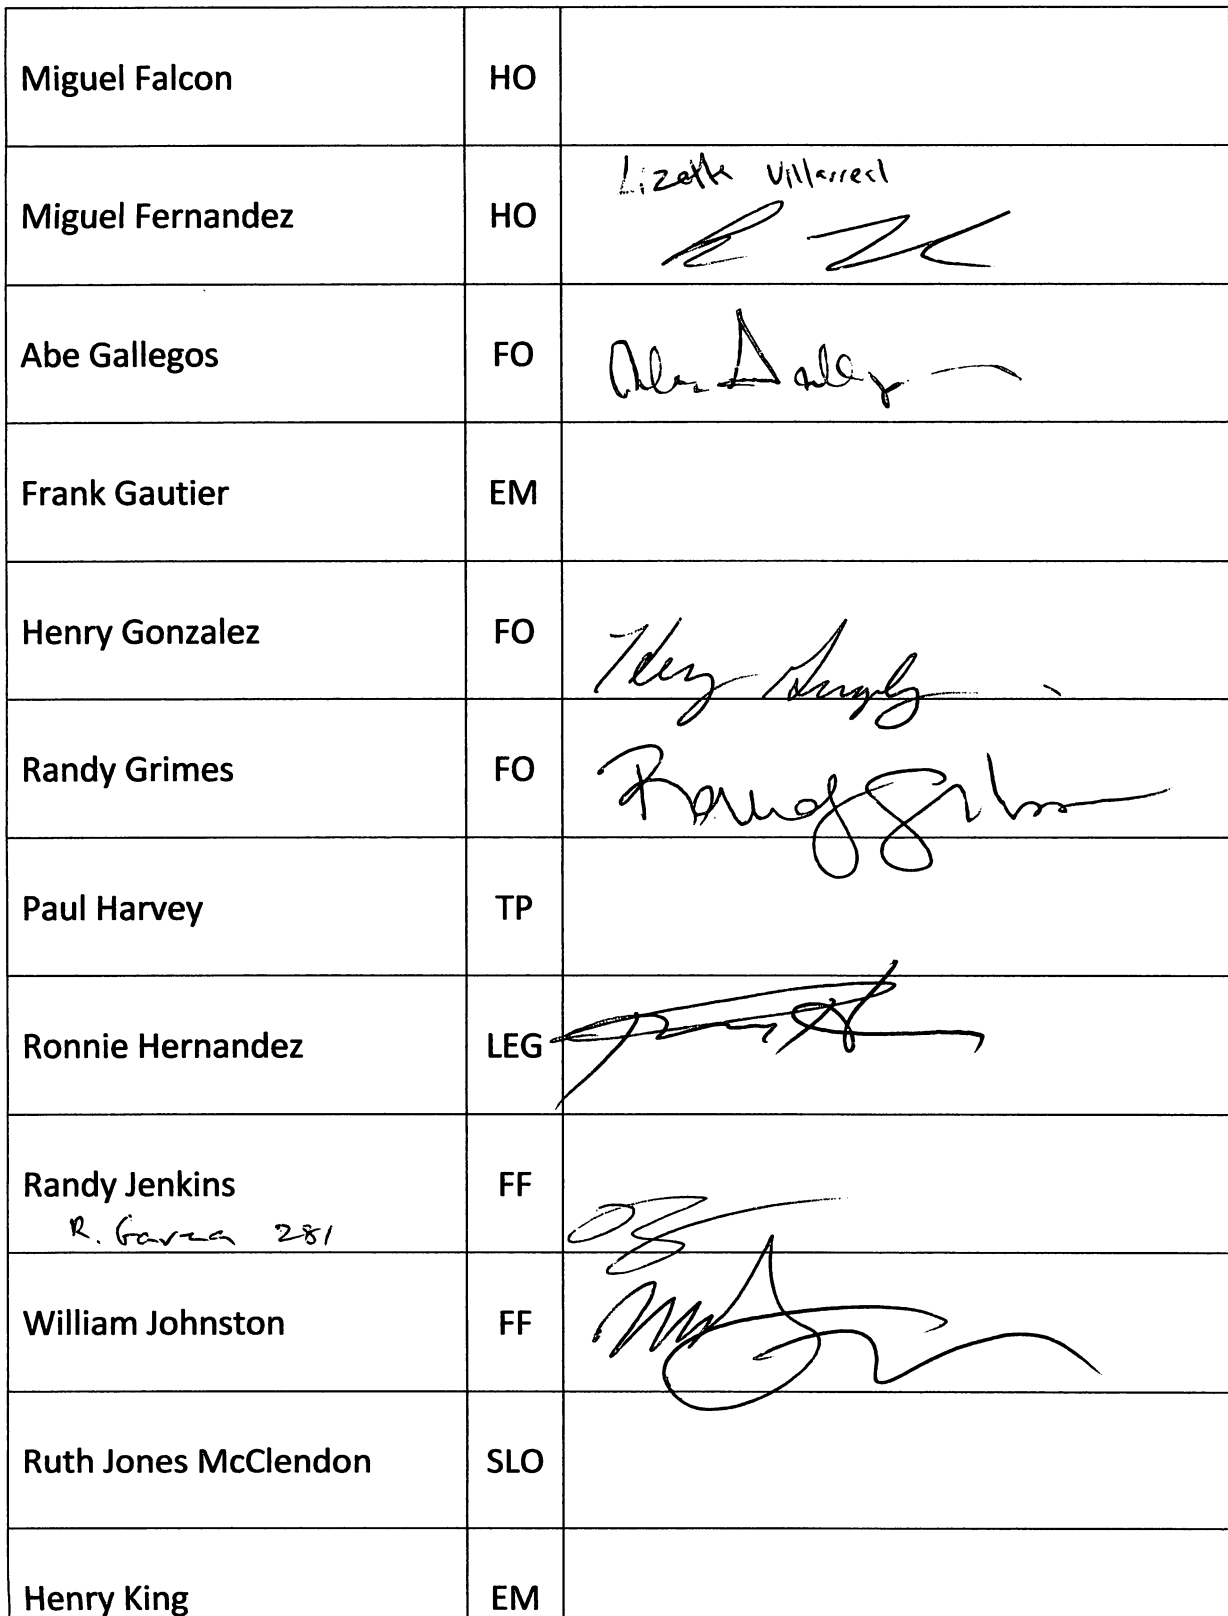 Miguel Falcon HO
Lizette Villarreal
Miguel Fernandez HO
Abe Gallegos FO
Frank Gautier EM
Henry Gonzalez FO
Randy Grimes FO
Paul Harvey TP
Ronnie Hernandez LEG
Randy Jenkins FF
R. Garza 281
William Johnston FF
Ruth Jones McClendon SLO
Henry King EM